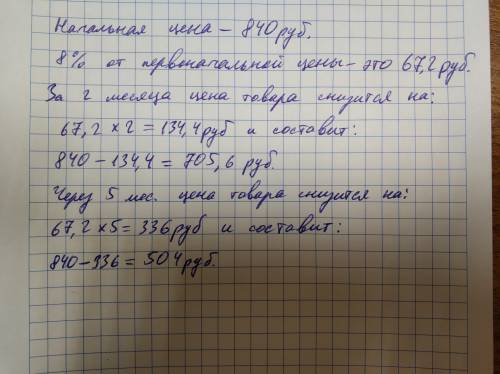 Начальная цена – 840 руб.
8% от первоначальной цены – это 67,2 руб.
За 2 месяца цена товара снизится на:
67,2 × 2 = 134,4 руб и составит:
840 – 134,4 = 705,6 руб.
Через 5 мес. цена товара снизится на:
67,2 × 5 = 336 руб и составит:
840 – 336 = 504 руб.